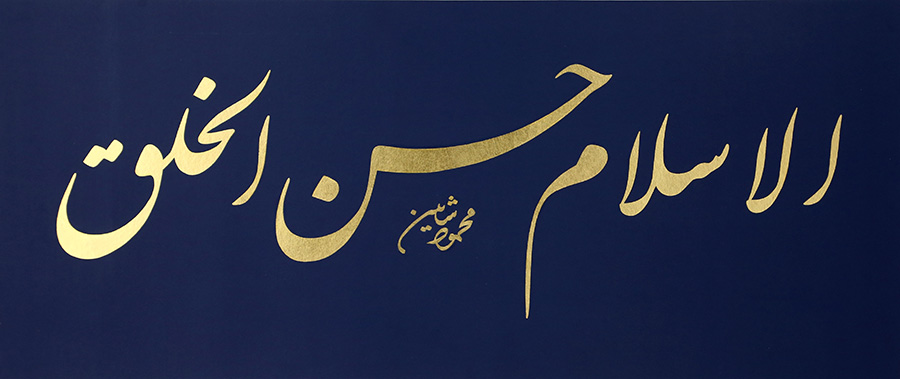 الاسلام حسن الخلق
محمود شاهين